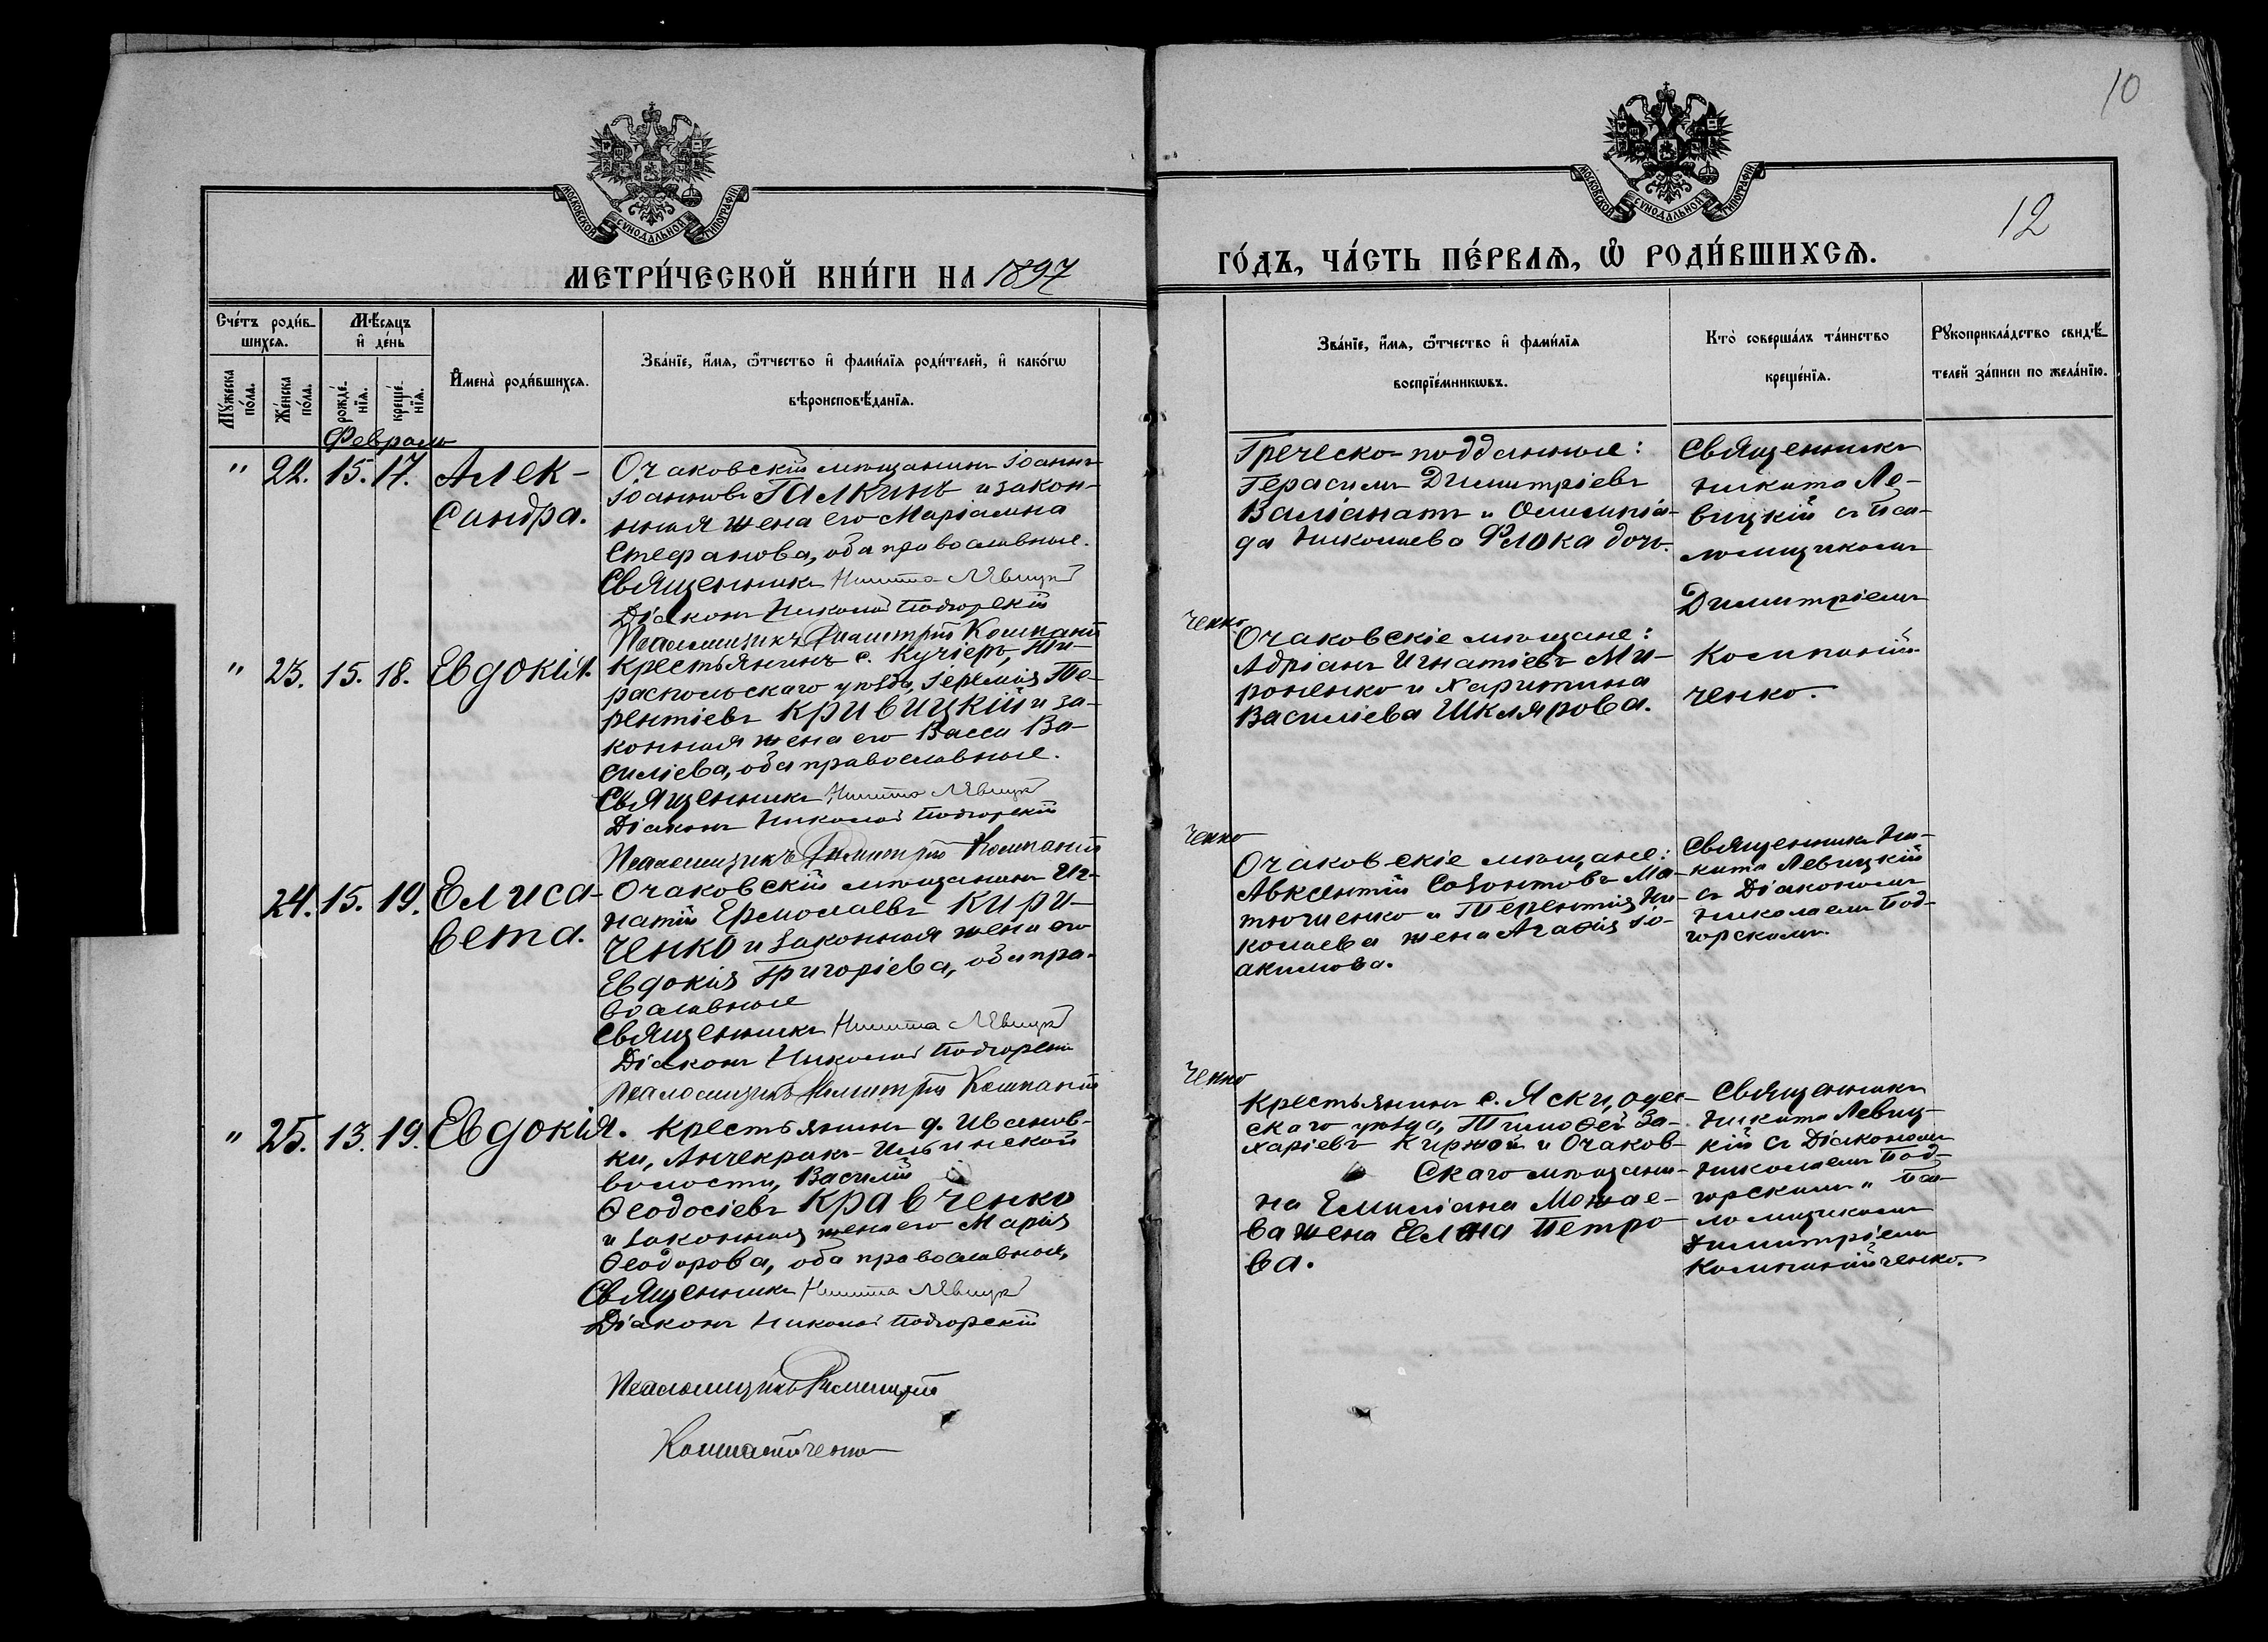 10
12
МОСКОВСКОЙ СѴНОДАЛЬНОЙ ТИПОГРАФІИ
МОСКОВСКОЙ СѴНОДАЛЬНОЙ ТИПОГРАФІИ
МЕТРИ́ЧЕСКОЙ КНИ́ГИ НА 1897
ГО́ДЪ, ЧА́СТЬ ПЕ́РВАѦ, Ѽ РОДИ́ВШИХСѦ.
Сче́тъ роди́в-
шихсѧ.
Мѣ́сѧцъ
и҆ де́нь
Мꙋ́жеска
по́ла.
Же́нска
по́ла.
рожде́-
нїѧ.
креще́-
нїѧ.
И҆мена̀ роди́вшихсѧ.
Зва́нїе, и҆́мѧ, ѻ҆́тчество и҆ фами́лїѧ роди́телей, и҆ како́гѡ
вѣроисповѣ́данїѧ.
Зва́нїе, и҆́мѧ, ѻ҆́тчество и҆ фами́лїѧ
воспрїе́мникѡвъ.
Кто̀ соверша́лъ та́инство
креще́нїѧ.
Рꙋкоприкла́дство свидѣ́-
телей за́писи по жела́нїю.
Февраль
" 22. 15. 17. Алек-
сандра.
Очаковскій мѣщанинъ Іоаннъ
Іоанновъ Галкинъ и закон-
ная жена его Маріамна
Стефанова, оба православные.
Священникъ Никита Левицкій
Діаконъ Николай Подгорскій
Псаломщикъ Димитрій Компаній
ченко
Греческо-подданные:
Герасимъ Димитріевъ
Валіанатъ и Олимпіа-
да Николаева Флока дочь.
Священникъ
Никита Ле-
вицкій съ Пса-
ломщикомъ
Димитріемъ
Компаній-
ченко.
" 23. 15. 18. Евдокія.
Крестьянинъ с. Кучіеръ, Ти-
распольскаго уѣзда, Іеремія Те-
рентіевъ Кривицкій и за-
конная жена его Васса Ва-
силіева, оба православные.
Священникъ Никита Левицкій
Діаконъ Николай Подгорскій
Псаломщикъ Димитрій Компаній
ченко
Очаковскіе мѣщане:
Адріанъ Игнатіевъ Ми-
роненко и Харитина
Василіева Шклярова.
24. 15. 19. Елиса-
вета.
Очаковскій мѣщанинъ Иг-
натій Ермолаевъ Кири-
ченко и законная жена его
Евдокія Григоріева, оба пра-
вославные
Священникъ Никита Левицкій
Діаконъ Николай Подгорскій
Псаломщикъ Димитрій Компаній
ченко
Очаковскіе мѣщане:
Авксентій Созонтовъ Ма-
тюшенко и Терентія Ни-
колаева жена Агафія Іо-
акимова.
Священникъ Ни-
кита Левицкій
съ Діакономъ
Николаемъ Под-
горскимъ.
" 25. 13. 19. Евдокія.
Крестьянинъ д. Ивановки-
ки, Анчекрак-Ильинской
волости, Василій
Ѳеодосіевъ Кравченко
и законная жена его Марія
Ѳеодорова, оба православные,
Священникъ Никита Левицкій
Діаконъ Николай Подгорскій
Псаломщикъ Димитрій
Компанійченко
Крестьянинъ с. Яски, Одес-
скаго уѣзда, Тимоѳей За-
харіевъ Киржой и Очаков-
скаго мѣщани-
на Емиліана Можае-
ва жена Елена Петро-
ва.
Священникъ
Никита Левиц-
кій съ Діакономъ
Николаемъ Под-
горскимъ и Пса-
ломщикомъ
Димитріемъ
Компанійченко.